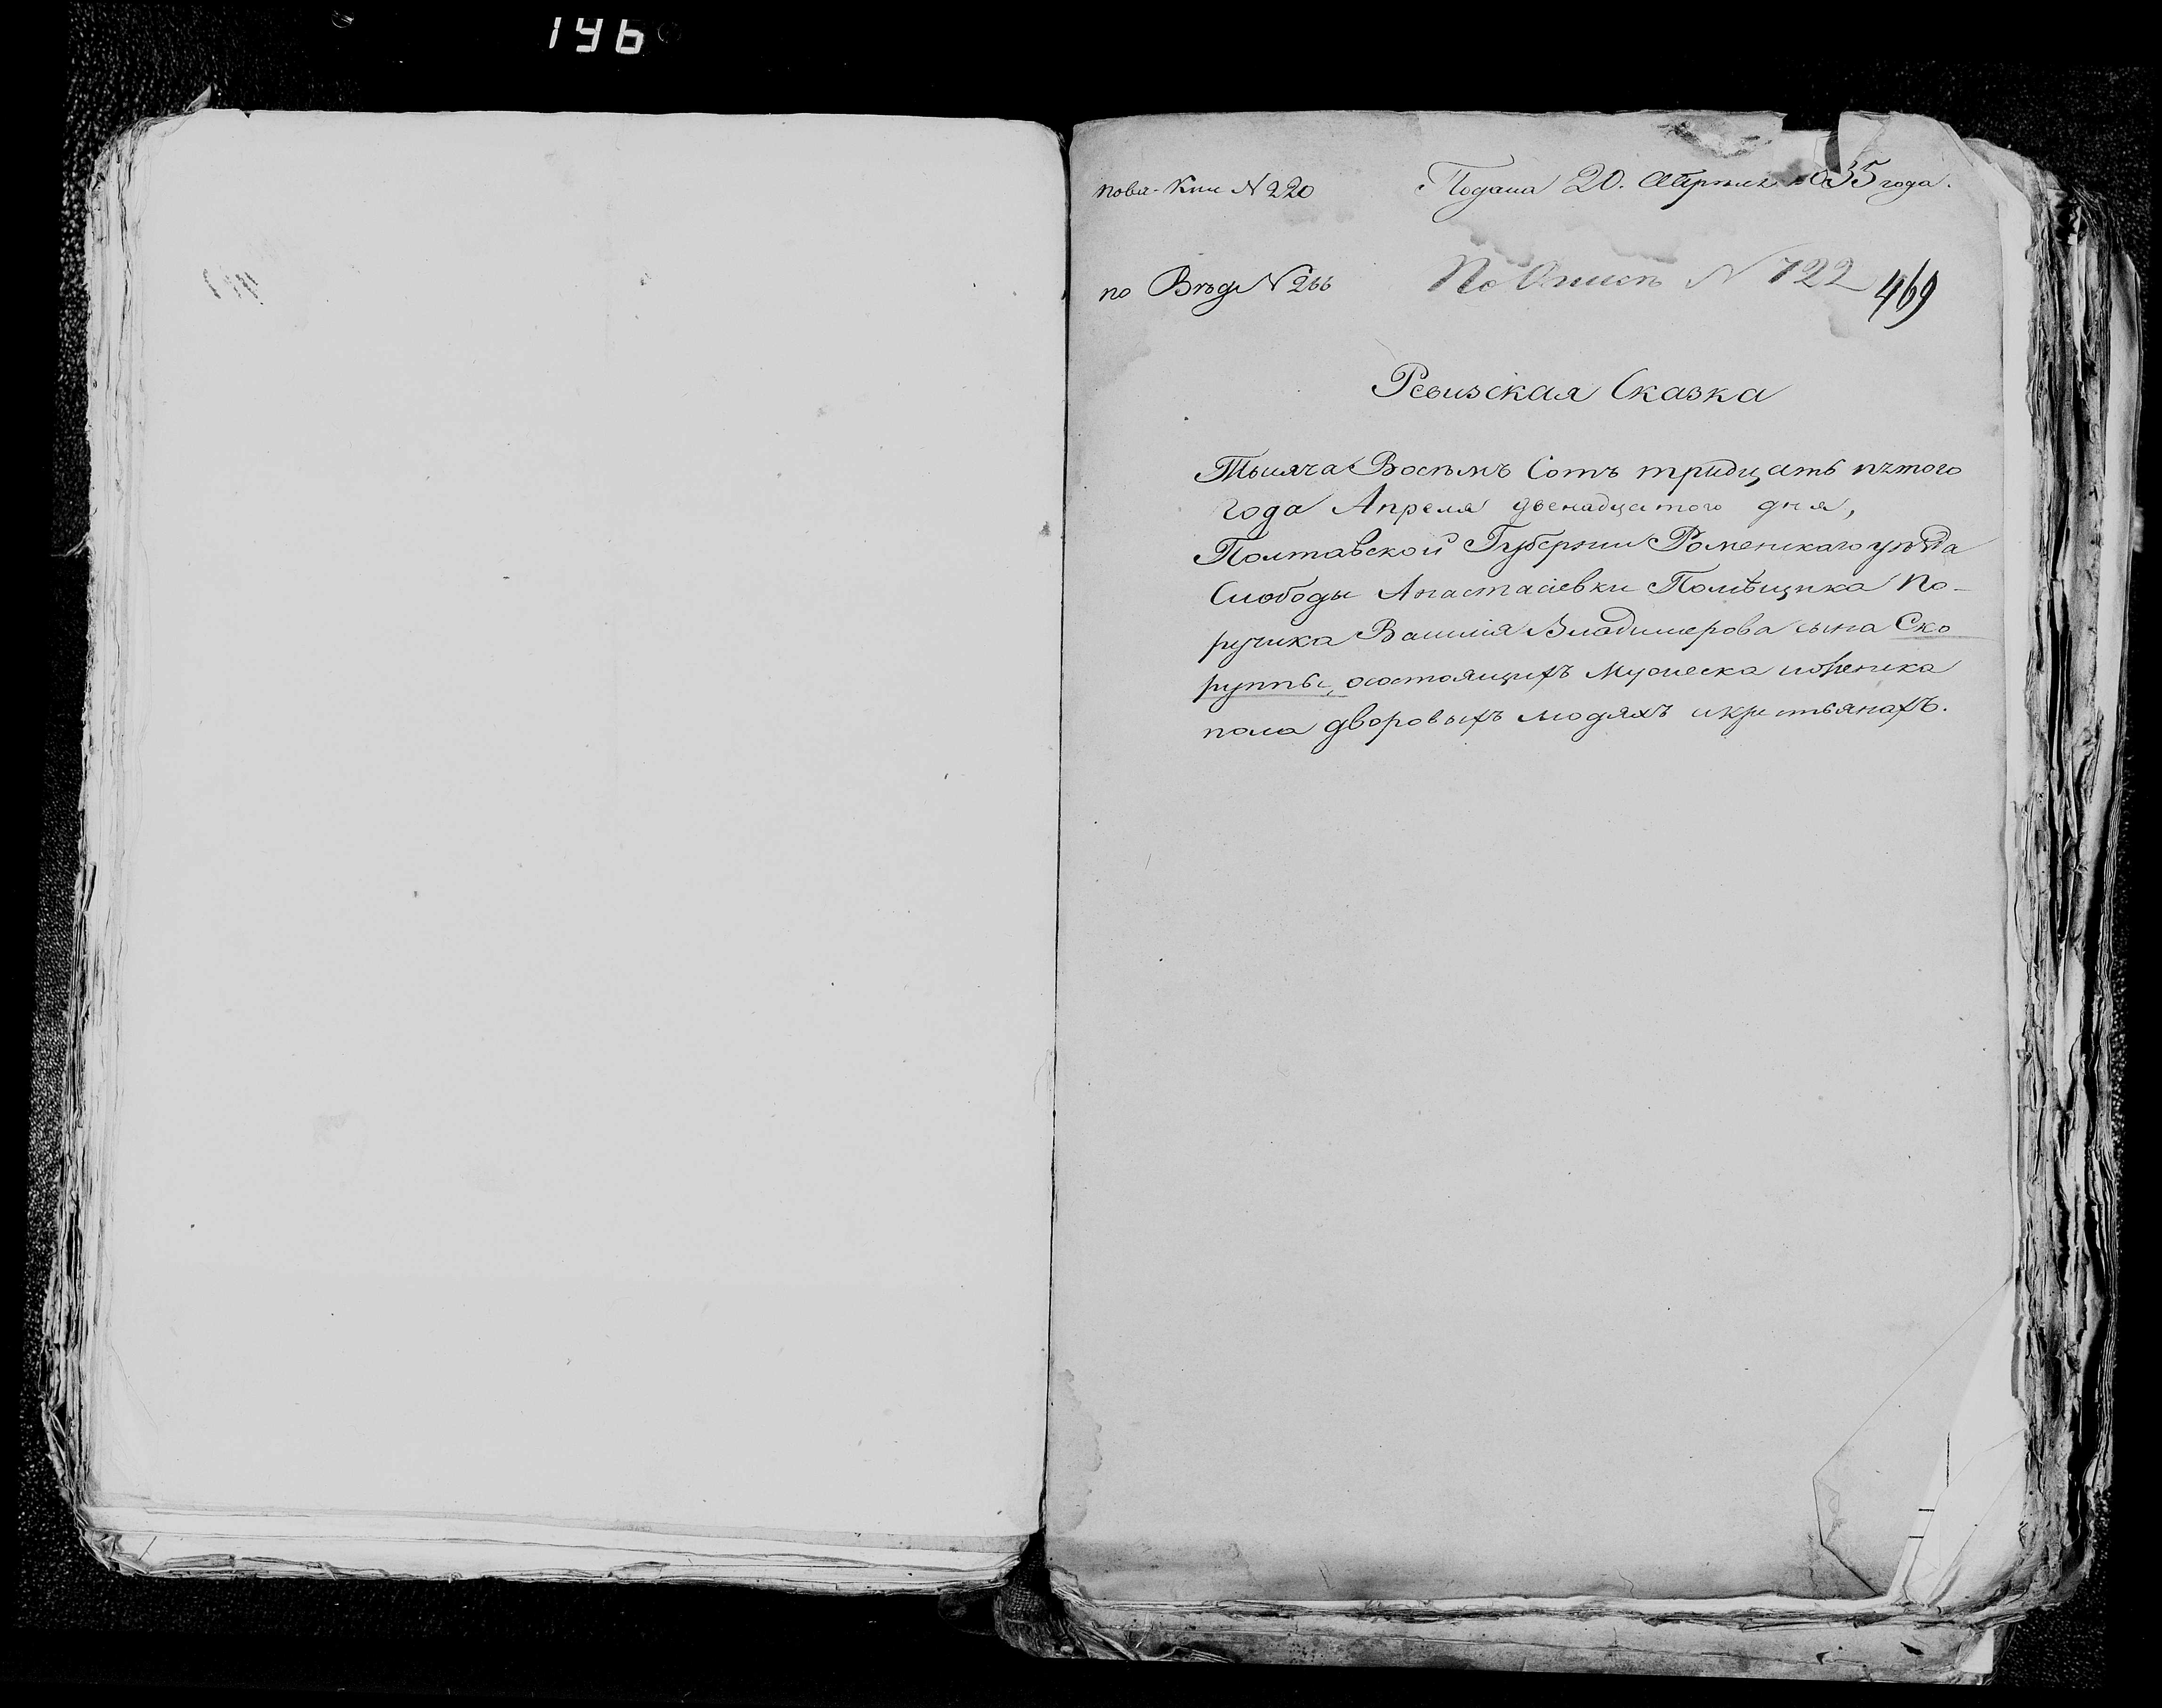 196
пова. Кни N 220
Подана 20. Апреля 1835 года.
по Вѣд N 266
По Описѣ N 722
469
Ревизская Сказка
Тысяча Восемъ Сотъ тридцать пятого
года Апреля двенадцатого дня,
Полтавской Губернии Роменскаго уезда
Слободы Анастасіевки Помѣщика По-
ручика Василія Владимерова сына Ско
руппы, осостоящихъ Мужеска иженска
пола дворовыхъ людяхъ икрестьянахъ.